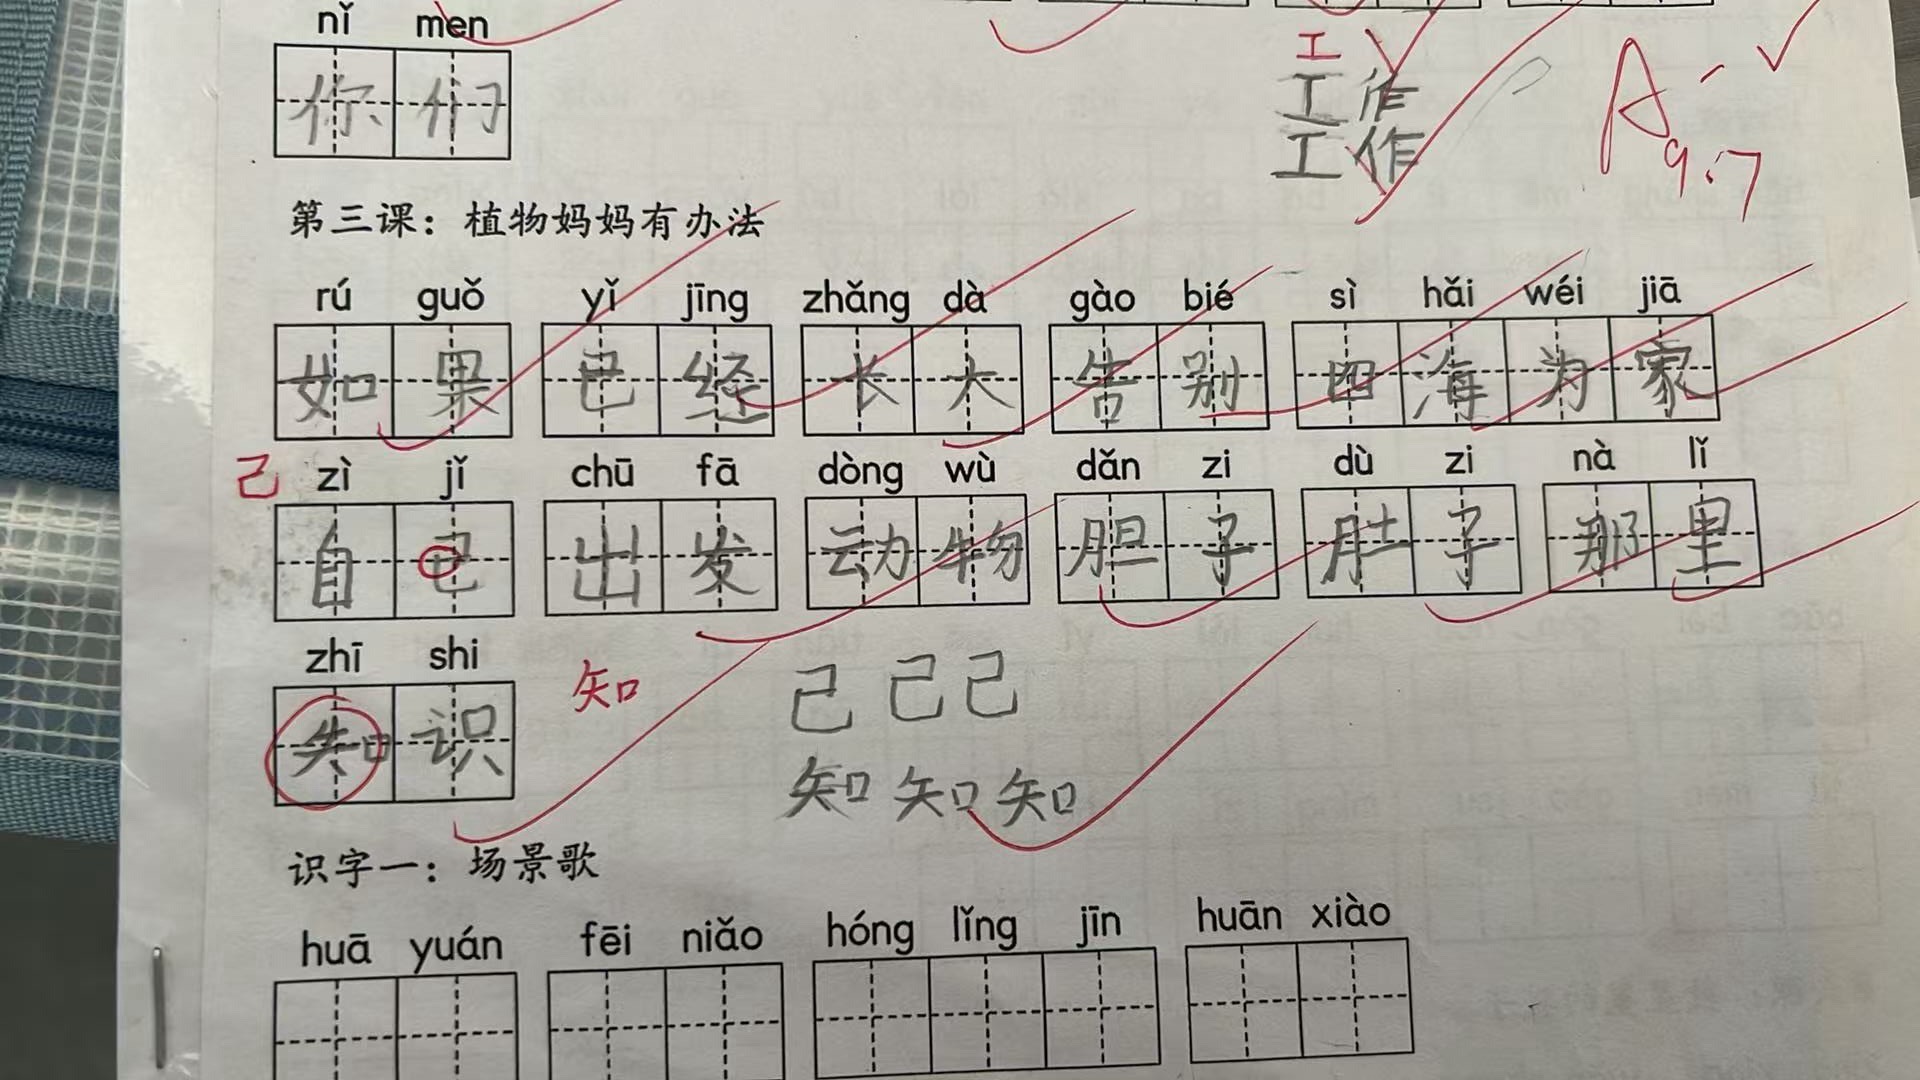 nǐ men
你们
工
工作
工作
A- 9.7
第三课：植物妈妈有办法
rú guǒ yǐ jīng zhǎng dà gào bié sì hǎi wéi jiā
如果 已经 长大 告别 四海为家
己 zì jǐ chū fā dòng wù dǎn zi dù zi nà lǐ
自已 出发 动物 胆子 肚子 那里
zhī shi
知识 知 己 己 己
知 知 知
识字一：场景歌
huā yuán fēi niǎo hóng lǐng jīn huān xiào